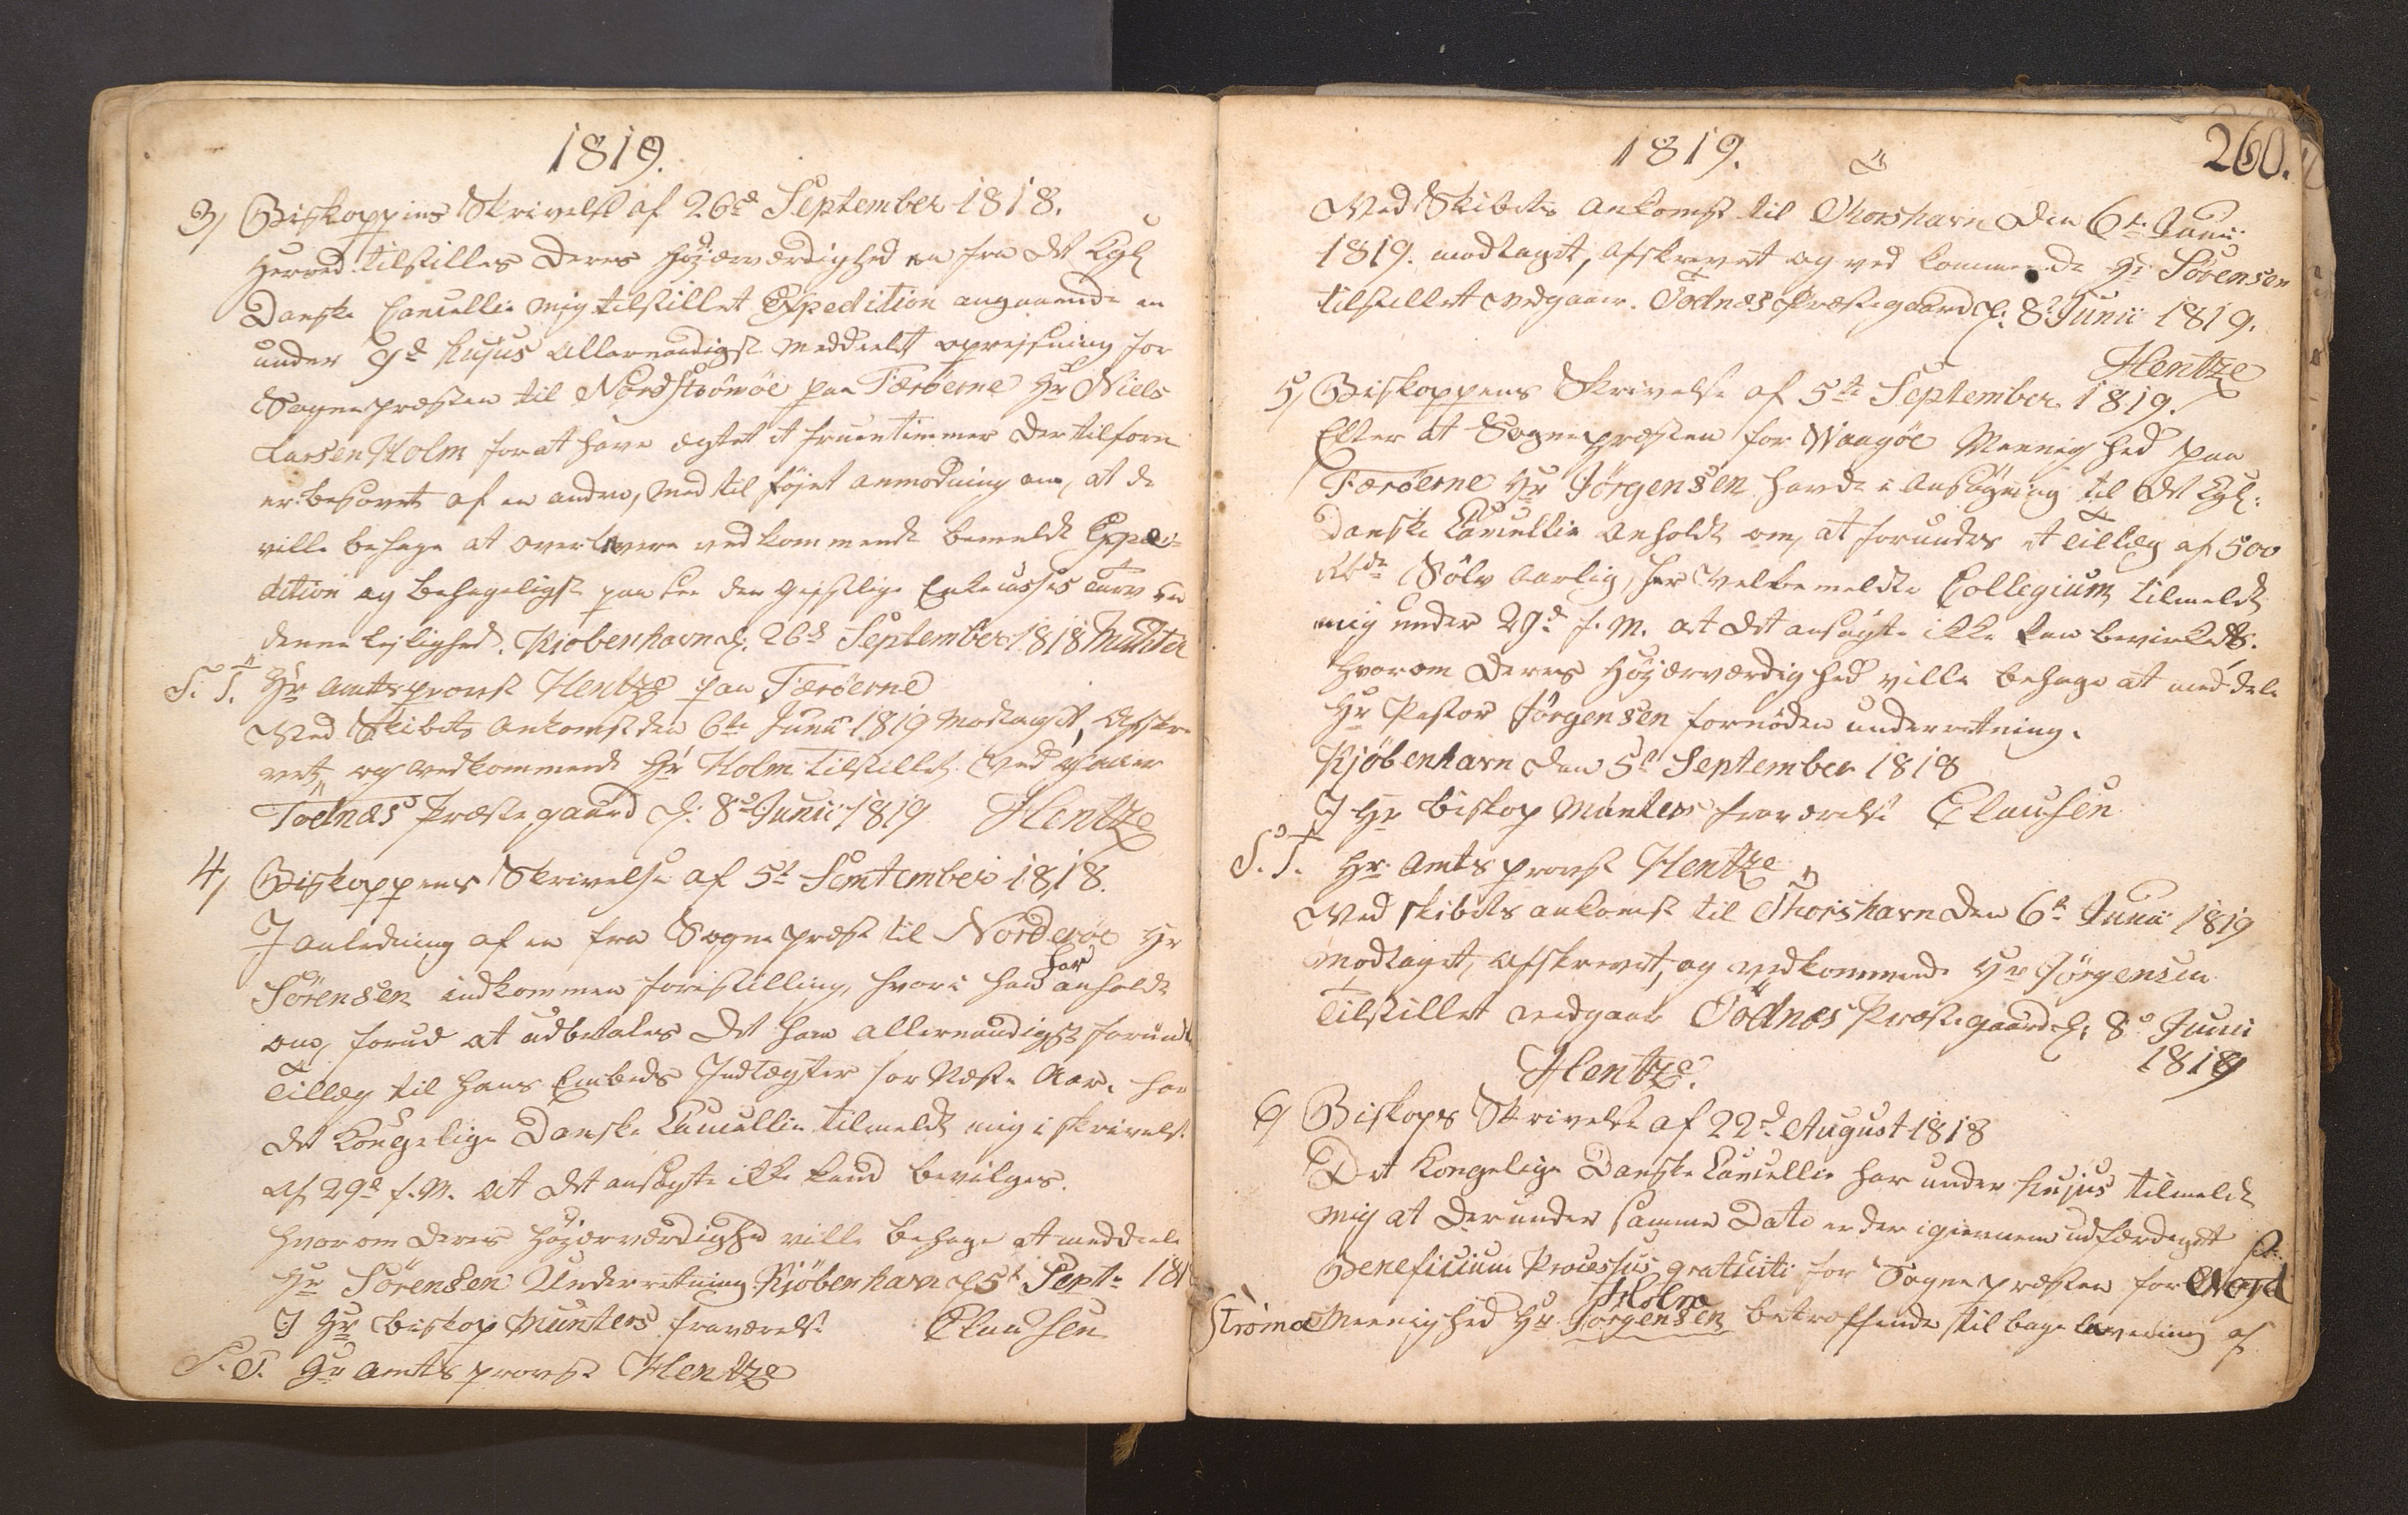 1819.
3) Biskoppens Skrivelse af 26de September 1818.
Herved tilstilles Deres Højærværdighed en fra det Kgl
Danske Cancellie mig tilstillet Expedition angaaende en
under 9d hujus allernaadigst meddeelt opreisning for
Sognepræsten til Nordströmöe paa Færöerne Hr Niels
Larsen Holm for at have ægtet et fruentimmer der tilforn
er besovet af en anden, med til föjet anmodning om, at de
ville behage at overlevere vedkommende bemeldte Expe-
dition og behageligst paa see den geistlige Enkecasses tarv ved
denne lejlighed. Kiobenhavn d. 26d September 1818 Münter
S. T. Hr Amtsprovst Hentze paa Færöerne
Med Skibets Ankomst den 6te Junii 1819 Modtaget, Afskre-
vet, og vedkommende Hr Holm tilstillet. Vedgaaer
Todnæs Præstegaard d. 8de Junii 1819 Hentze
4) Biskoppens Skrivelse af 5t Semtember 1818.
I anledning af en fra Sognepræst til Norderöe Hr
Sörensen indkommen forestilling, hvori han har anholdt
om, forud at udbetales det ham allernaadigst forundte
Tillæg til hans Embeds Indtægter for Næste Aar, har
det Kongelige Danske Cancellie tilmeldt mig i skrivelse
af 29d f. M. at det ansøgte ikke kand bevilges.
hvorom Deres Højærværdighed ville behage at meddeele
Hr Sörensen Underretning. Kjöbenhavn d 5t Septr 181
I Hr Biskop Munters fraværelse Clausen
S. T. Hr Amtsprovst Hentze
1819.
260.
Med Skibets Ankomst til Thorshavn den 6t Junii
1819. modtaget, afskrevet og ved kommende Hr Sörensen
tilstillet vedgaaer. Todnæs Præstegaard d. 8d Junii 1819.
Hentze
5) Biskoppens Skrivelse af 5te September 1819.
Efter at Sognepræsten for Waagöe Menighed paa
Færöerne Hr Jörgensen havde i Ansögning til det Kgl:
Danske Cancellie anholdt om, at forundes et Tillæg af 500
Rbdr Sölv Aarlig, har Velbemeldte Collegium tilmeldt
mig under 29d f. M. at det ansøgte ikke kan bevirkes.
hvorom Deres Höjærværdighed ville behage at meddele
Hr Pastor Jörgensen fornöden underretning.
Kjöbenhavn den 5t September 1818
I Hr Biskop Munters fraværelse Clausen
S. T. Hr. Amtsprovst Hentze
Med skibets ankomst til Thorshavn den 6t Junii 1819
modtaget, afskrevet, og vedkommende Hr Jörgensen
Tilstillet vedgaar Todnæs Præstegaard d. 8d Junii
1819
Hentze.
6) Biskops Skrivelse af 22d August 1818
Det Kongelige Danske Cancellie har under hujus tilmeldt
mig at der under samme Dato er der igiennem udfærdiget
Beneficium Processus gratuiti for Sognepræsten for Nord
Strömøe Meenighed Hr Jörgensen Holm betreffende tilbage levering af